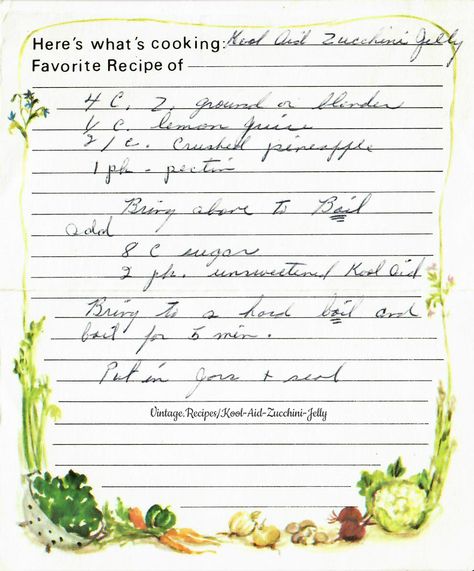 Here's what's cooking: Kool Aid Zucchini Jelly
Favorite Recipe of
4 C. Z. ground or blender
C. lemon juice
C. Crushed pineapple
1 pk. pectin
Bring above to Boil
add
8 C sugar
2 pk. unsweetened Kool Aid
Bring to a hard boil and
boil for 5 min.
Put in jars + seal
Vintage.Recipes/Kool-Aid-Zucchini-Jelly